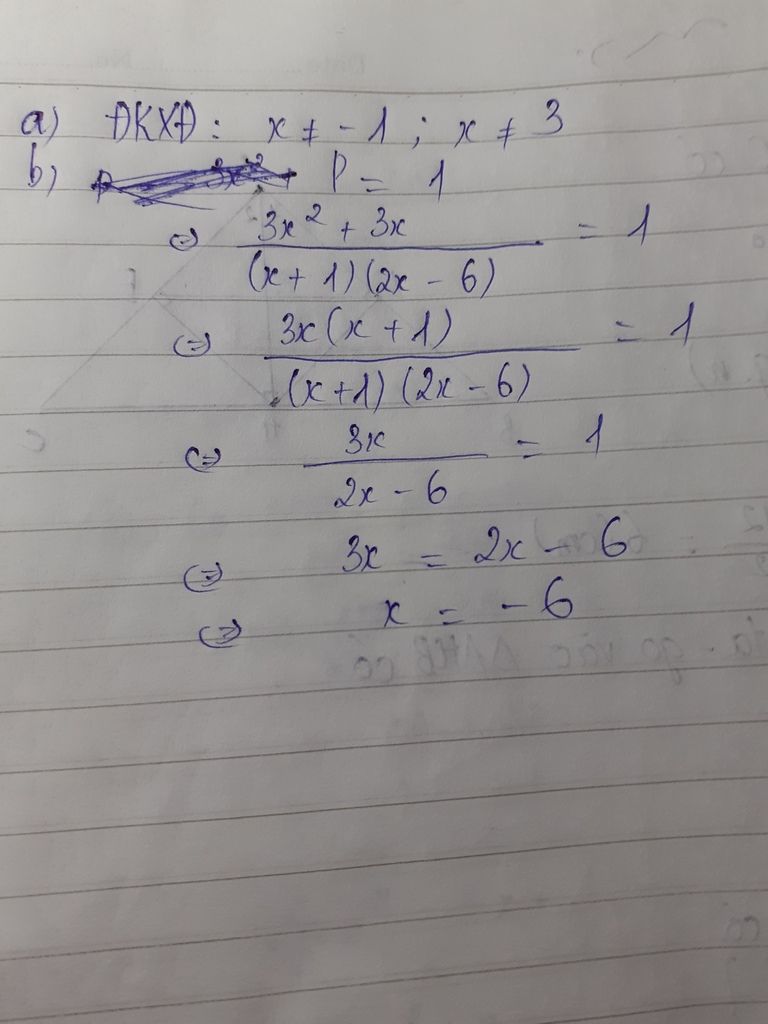 a) ĐKXĐ: x ≠ -1 ; x ≠ 3
b) P = 1
⇔ 3x² + 3x / (x + 1)(2x - 6) = 1
⇔ 3x(x + 1) / (x+1)(2x - 6) = 1
⇔ 3x / 2x - 6 = 1
⇔ 3x = 2x - 6
⇔ x = -6